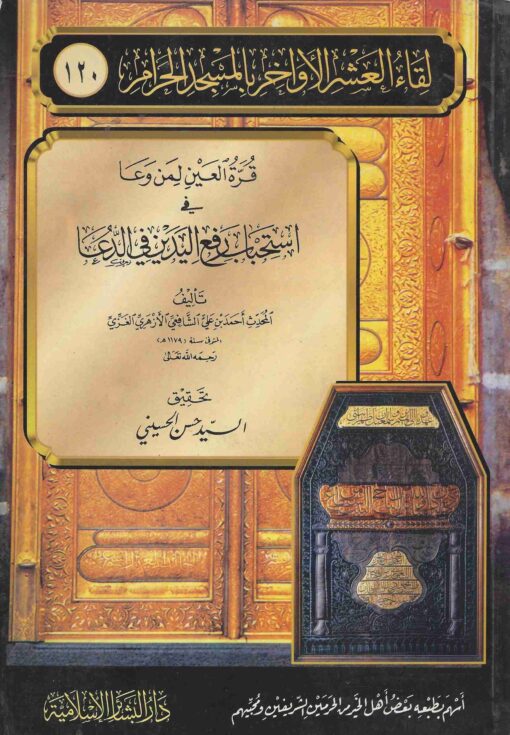 لِقَاءُ العَشْرِ الأَوَاخِرِ بِالمَسْجِدِ الحَرَامِ
١٢٠
قُرَّةُ العَيْنِ لِمَن وَعَا
فِي
اسْتِحْبَابِ رَفْعِ اليَدَيْنِ فِي الدُّعَا
تَأْلِيفُ
المُحَدِّثِ أَحْمَدَ بْنِ عَلِيٍّ الشَّافِعِيِّ الأَزْهَرِيِّ الغَزِّيِّ
المتوفى سنة (١١٧٩ هـ)
رَحِمَهُ اللهُ تَعَالَىٰ
تَحْقِيقُ
السَّيِّد حَسَن الحُسَيْنِي
أَسْهَمَ بِطَبْعِهِ بَعْضُ أَهْلِ الخَيْرِ مِنَ الحَرَمَيْنِ الشَّرِيفَيْنِ وَمُحِبِّيهِمْ
دَارُ البَشَائِرِ الإِسْلَامِيَّةِ